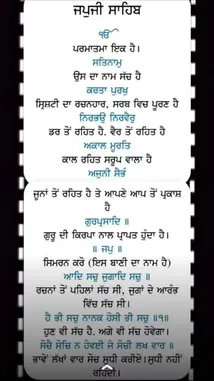 ਜਪੁਜੀ ਸਾਹਿਬ
ੴ
ਪਰਮਾਤਮਾ ਇਕ ਹੈ।
ਸਤਿਨਾਮੁ
ਉਸ ਦਾ ਨਾਮ ਸੱਚ ਹੈ
ਕਰਤਾ ਪੁਰਖੁ
ਸ੍ਰਿਸ਼ਟੀ ਦਾ ਰਚਨਹਾਰ, ਸਰਬ ਵਿਚ ਪੂਰਣ ਹੈ
ਨਿਰਭਉ ਨਿਰਵੈਰੁ
ਡਰ ਤੋਂ ਰਹਿਤ ਹੈ. ਵੈਰ ਤੋਂ ਰਹਿਤ ਹੈ
ਅਕਾਲ ਮੂਰਤਿ
ਕਾਲ ਰਹਿਤ ਸਰੂਪ ਵਾਲਾ ਹੈ
ਅਜੂਨੀ ਸੈਭੰ
ਜੂਨਾਂ ਤੋਂ ਰਹਿਤ ਹੈ ਤੇ ਆਪਣੇ ਆਪ ਤੋਂ ਪ੍ਰਕਾਸ਼
ਹੈ
ਗੁਰਪ੍ਰਸਾਦਿ ॥
ਗੁਰੂ ਦੀ ਕਿਰਪਾ ਨਾਲ ਪ੍ਰਾਪਤ ਹੁੰਦਾ ਹੈ।
॥ ਜਪੁ ॥
ਸਿਮਰਨ ਕਰੋ (ਇਸ ਬਾਣੀ ਦਾ ਨਾਮ ਹੈ)
ਆਦਿ ਸਚੁ ਜੁਗਾਦਿ ਸਚੁ ॥
ਰਚਨਾਂ ਤੋਂ ਪਹਿਲਾਂ ਸੱਚ ਸੀ, ਜੁਗਾਂ ਦੇ ਆਰੰਭ
ਵਿੱਚ ਸੱਚ ਸੀ।
ਹੈ ਭੀ ਸਚੁ ਨਾਨਕ ਹੋਸੀ ਭੀ ਸਚੁ ॥੧॥
ਹੁਣ ਵੀ ਸੱਚ ਹੈ. ਅਗੇ ਵੀ ਸੱਚ ਹੋਵੇਗਾ।
ਸੋਚੈ ਸੋਚਿ ਨ ਹੋਵਈ ਜੇ ਸੋਚੀ ਲਖ ਵਾਰ ॥
ਭਾਵੇਂ ਲੱਖਾਂ ਵਾਰ ਸੋਚ ਸੁਧੀ ਕਰੀਏ। ਸੁਧੀ ਨਹੀਂ
ਰਹਿੰਦੀ।